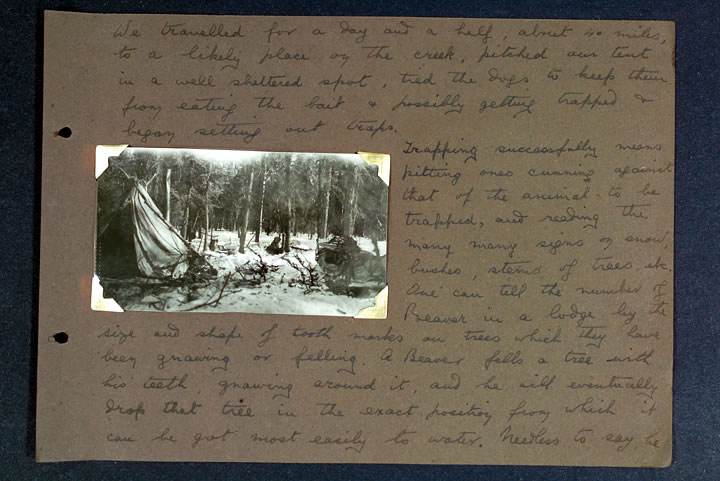 We travelled for a day and a half, about 40 miles,
to a likely place on the creek, pitched our tent
in a well sheltered spot, tied the dogs to keep them
from eating the bait & possibly getting trapped &
began setting out traps.
Trapping successfully means
pitting ones cunning against
that of the animal to be
trapped, and reading the
many many signs on snow,
bushes, stems of trees, etc.
One can tell the number of
Beaver in a lodge by the
size and shape of tooth marks on trees which they have
been gnawing or felling. A Beaver fells a tree with
his teeth gnawing around it, and he will eventually
drop that tree in the exact position from which it
can be got most easily to water. Needless to say, he